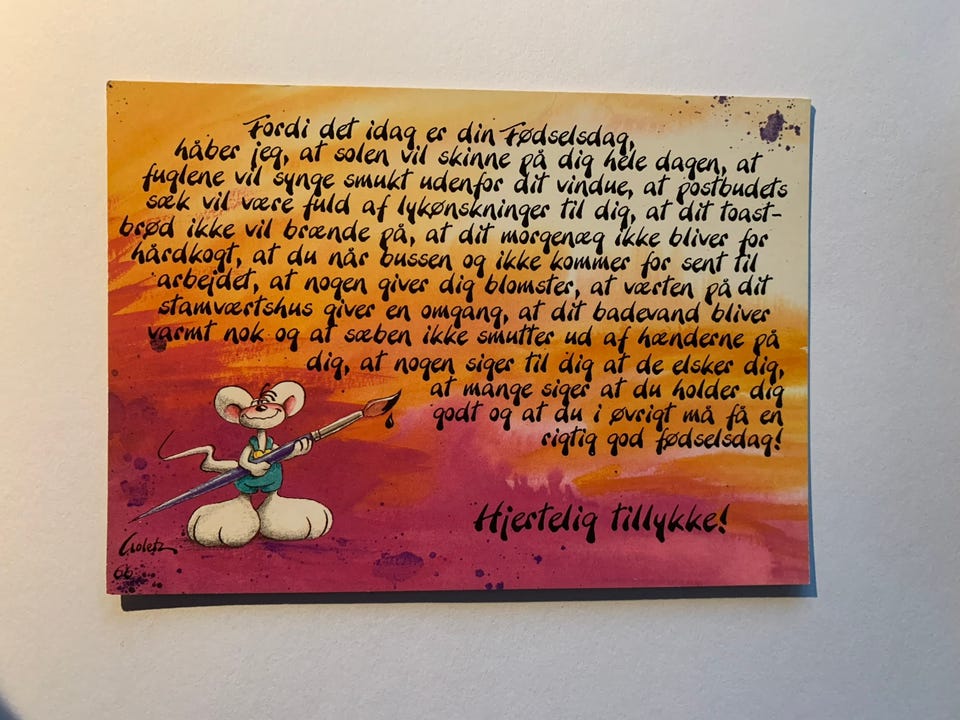 Fordi det idag er din Fødselsdag,
håber jeg, at solen vil skinne på dig hele dagen, at
fuglene vil synge smukt udenfor dit vindue, at postbudets
sæk vil være fuld af lykønskninger til dig, at dit toast-
brød ikke vil brænde på, at dit morgenæg ikke bliver for
hårdkogt, at du når bussen og ikke kommer for sent til
arbejdet, at nogen giver dig blomster, at værten på dit
stamværtshus giver en omgang, at dit badevand bliver
varmt nok og at sæben ikke smutter ud af hænderne på
dig, at nogen siger til dig at de elsker dig,
at mange siger at du holder dig
godt og at du i øvrigt må få en
rigtig god fødselsdag!
Hjertelig tillykke!
Goletz
66